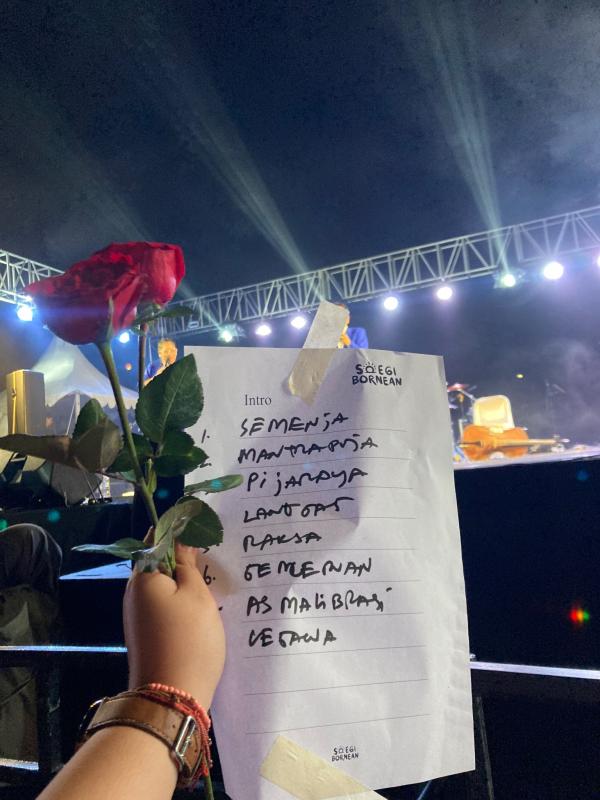 SOEGI
BORNEAN
Intro
1. SEMENJA
MANTRARUJA
PIJARAYA
LANTAS
RAKSA
6. GEMERNAN
ASMALIBRASI
SOEGI
BORNEAN